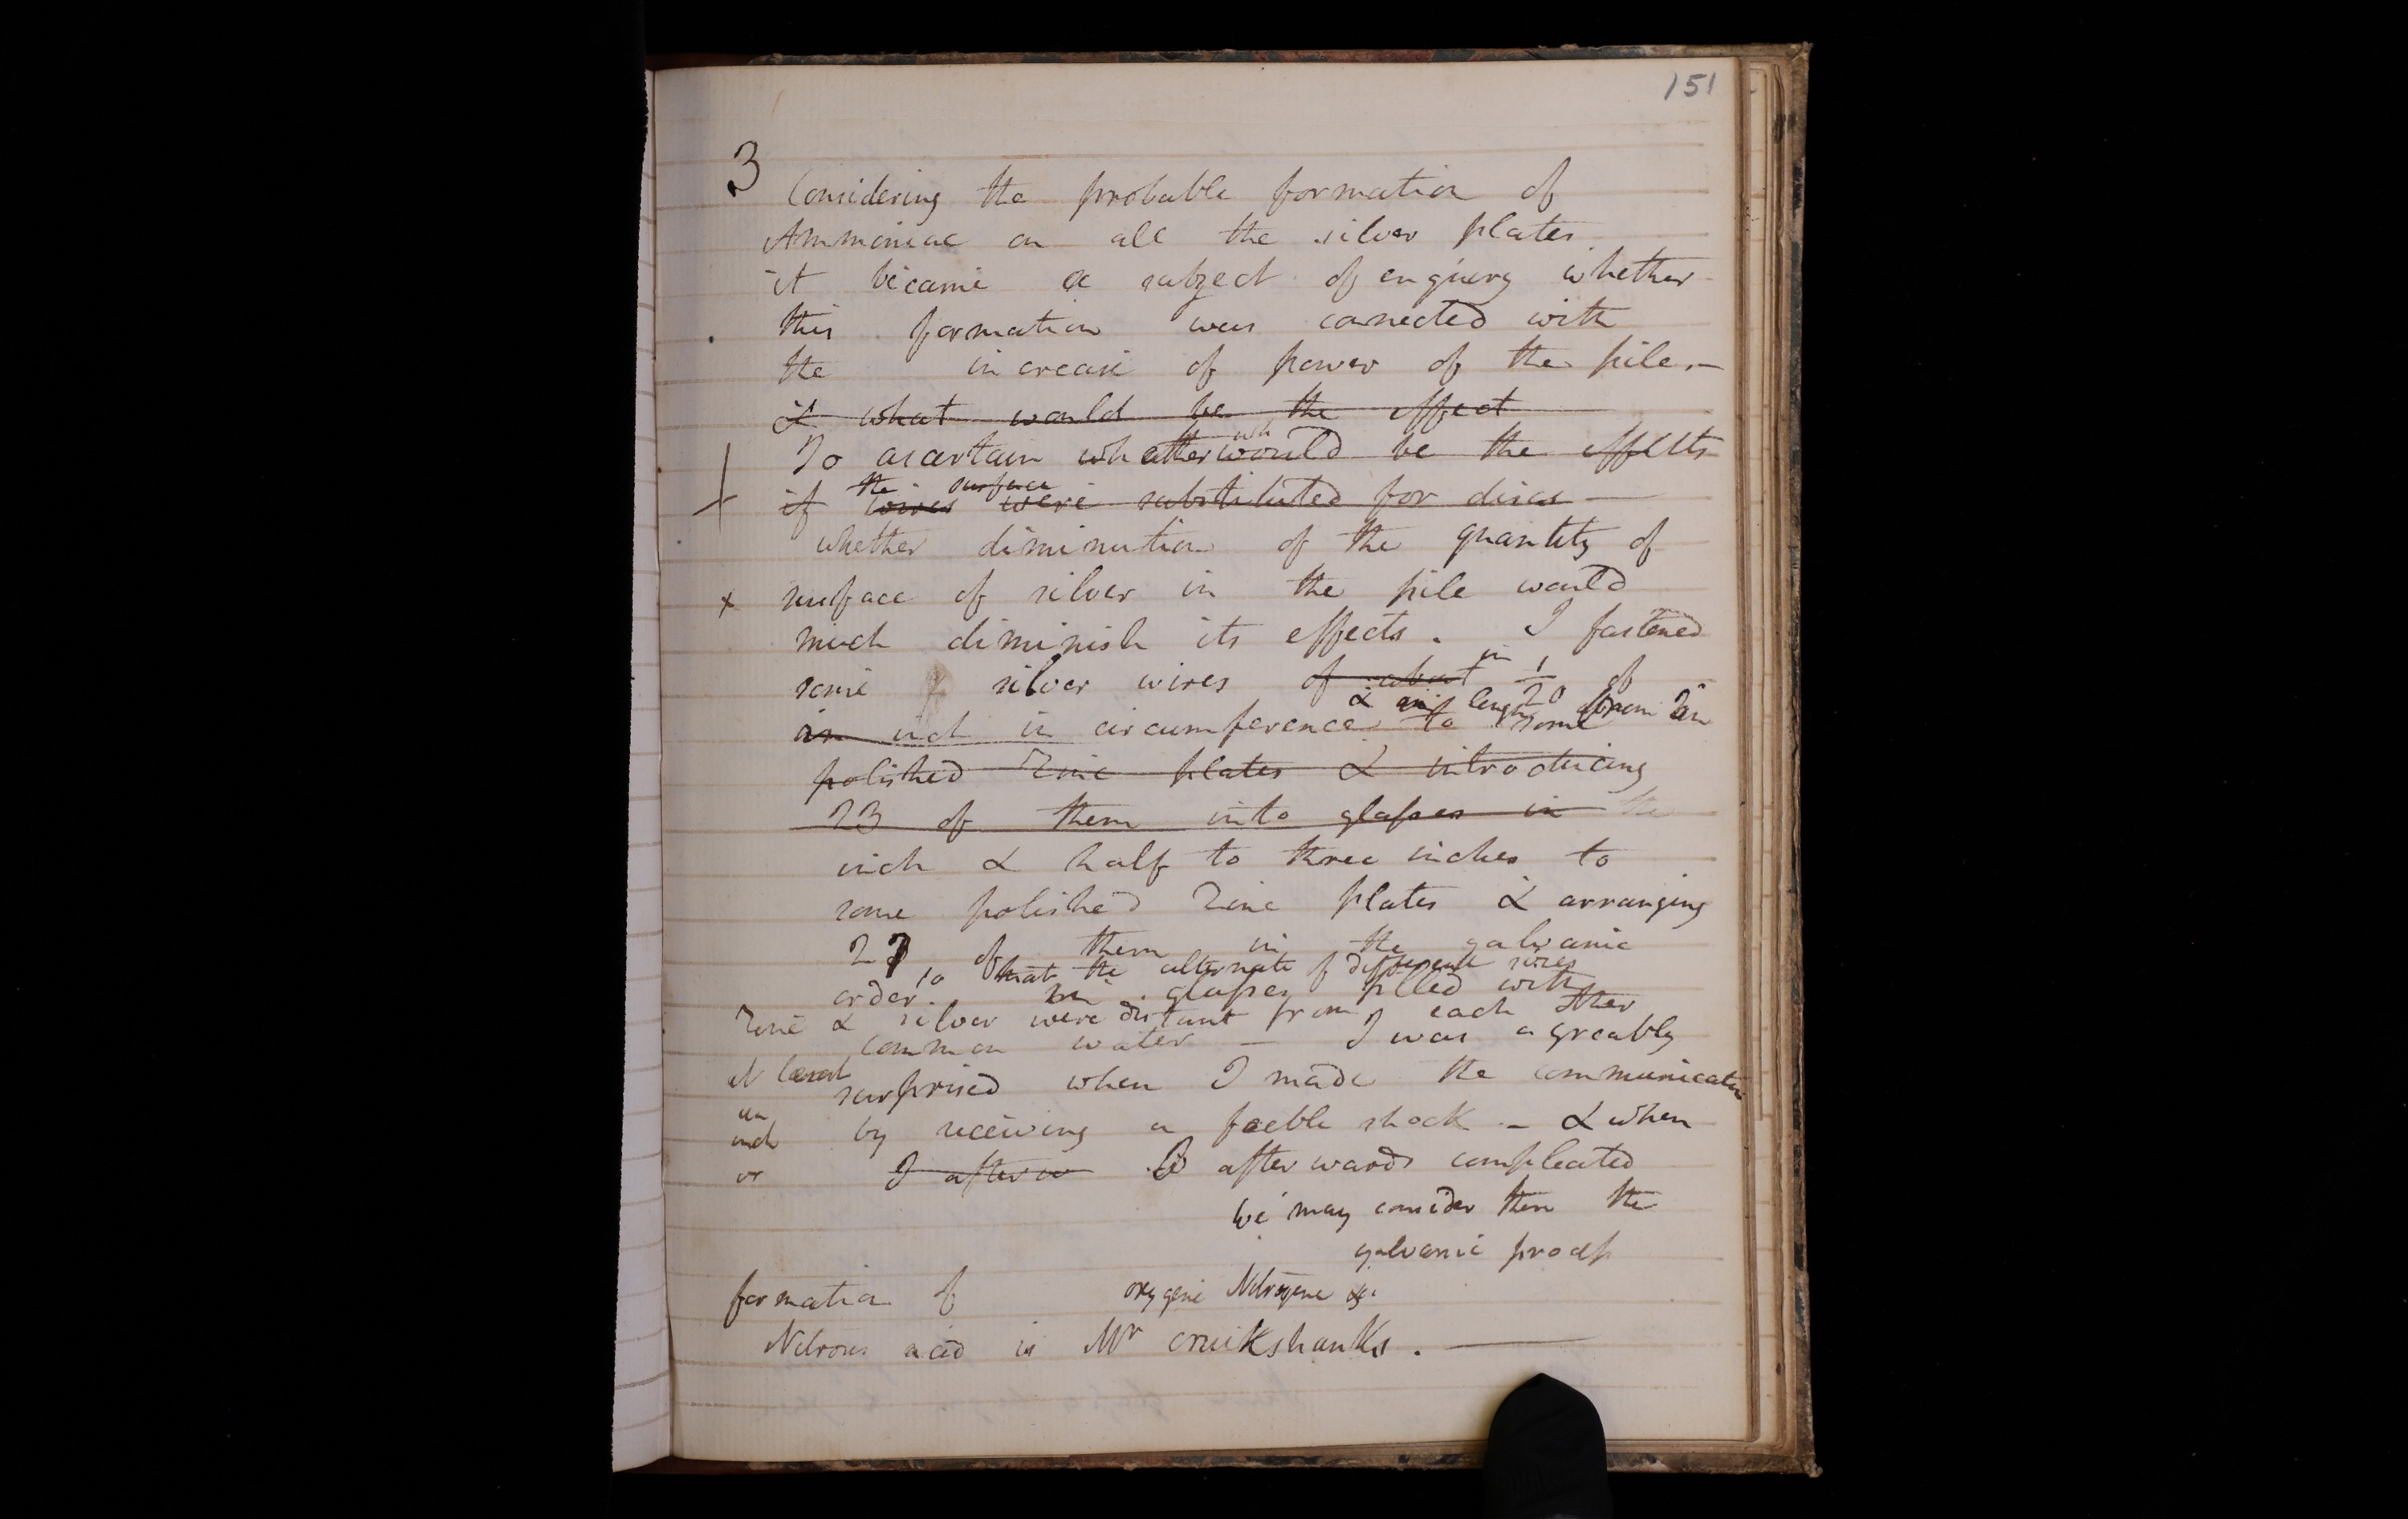 151
3 Considering the probable formation of
Ammoniac on all the silver plates
it became a subject of enquiry whether
this formation was conected with
the increase of power of the pile.—
& what would be the effect
wh
To ascertain whatther would be the effects
the surface
if wires were substituted for discs —
whether diminution of the quantity of
x surface of silver in the pile would
much diminish its effects. I fastened
in 1/20 of
some silver wires of about
& in length from an
an inch in circumference to some
polished Zinc plates & introducing
23 of them into glasses in the
inch & half to three inches to
some polished Zinc plates & arranging
27 of them in the galvanic
so that the alternate of different wires
order. glasses filled with
Zinc & silver were distant from each other
common water — I was agreably
at least
surprised when I made the communication
an
inch by receiving a feeble shock — & when
or I afterw I afterwards compleated
we may consider then the
galvanic process
formation of oxygene Nitrogene &c.
Nitrous acid is Mr Cruikshanks. —